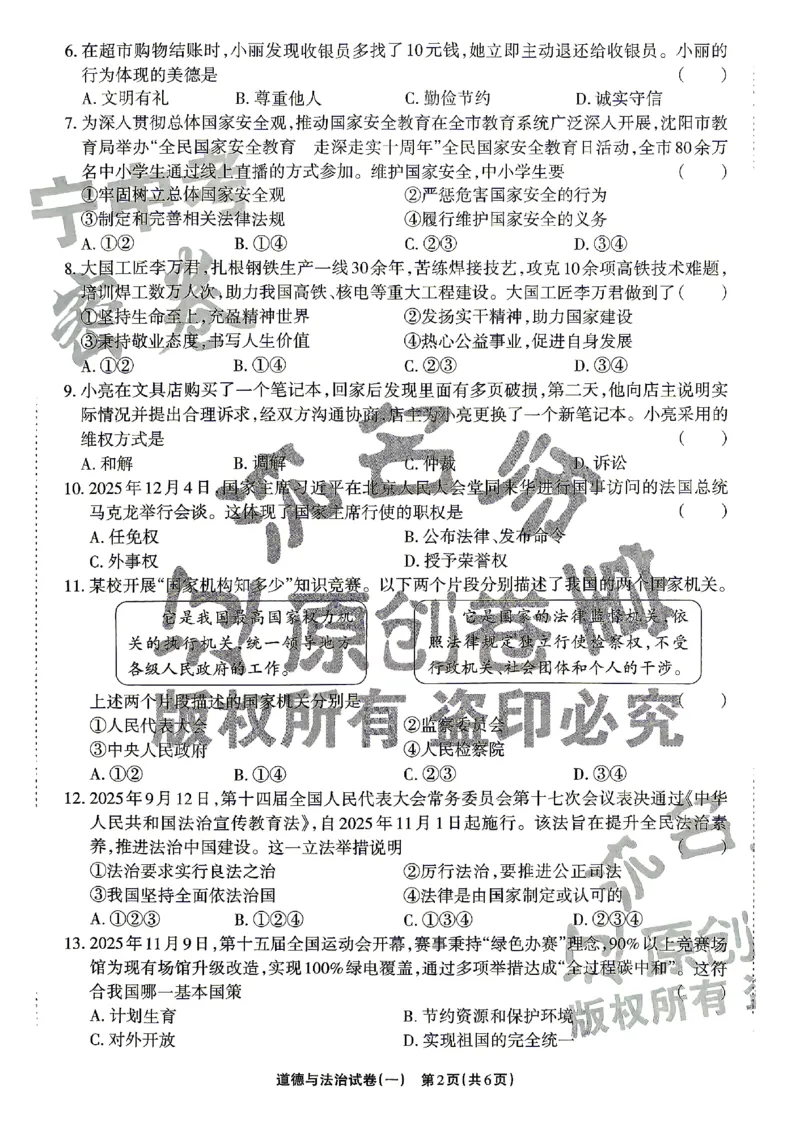 6. 在超市购物结账时,小丽发现收银员多找了10元钱,她立即主动退还给收银员。小丽的
行为体现的美德是 ( )
A. 文明有礼 B. 尊重他人 C. 勤俭节约 D. 诚实守信
7. 为深入贯彻总体国家安全观,推动国家安全教育在全市教育系统广泛深入开展,沈阳市教
育局举办“全民国家安全教育 走深走实十周年”全民国家安全教育日活动,全市80余万
名中小学生通过线上直播的方式参加。维护国家安全,中小学生要 ( )
①牢固树立总体国家安全观 ②严惩危害国家安全的行为
③制定和完善相关法律法规 ④履行维护国家安全的义务
A. ①② B. ①④ C. ②③ D. ③④
8. 大国工匠李万君,扎根钢铁生产一线30余年,苦练焊接技艺,攻克10余项高铁技术难题,
培训焊工数万人次,助力我国高铁、核电等重大工程建设。大国工匠李万君做到了( )
①坚持生命至上,充盈精神世界 ②发扬实干精神,助力国家建设
③秉持敬业态度,书写人生价值 ④热心公益事业,促进自身发展
A. ①② B. ①④ C. ②③ D. ③④
9. 小亮在文具店购买了一个笔记本,回家后发现里面有多页破损,第二天,他向店主说明实
际情况并提出合理诉求,经双方沟通协商,店主为小亮更换了一个新笔记本。小亮采用的
维权方式是 ( )
A. 和解 B. 调解 C. 仲裁 D. 诉讼
10. 2025年12月4日,国家主席习近平在北京人民大会堂同来华进行国事访问的法国总统
马克龙举行会谈。这体现了国家主席行使的职权是 ( )
A. 任免权 B. 公布法律、发布命令
C. 外事权 D. 授予荣誉权
11. 某校开展“国家机构知多少”知识竞赛。以下两个片段分别描述了我国的两个国家机关。
它是我国最高国家权力机
关的执行机关,统一领导地方
各级人民政府的工作。
它是国家的法律监督机关,依
照法律规定独立行使检察权,不受
行政机关、社会团体和个人的干涉。
上述两个片段描述的国家机关分别是 ( )
①人民代表大会 ②监察委员会
③中央人民政府 ④人民检察院
A. ①② B. ①④ C. ②③ D. ③④
12. 2025年9月12日,第十四届全国人民代表大会常务委员会第十七次会议表决通过《中华
人民共和国法治宣传教育法》,自2025年11月1日起施行。该法旨在提升全民法治素
养,推进法治中国建设。这一立法举措说明 ( )
①法治要求实行良法之治 ②厉行法治,要推进公正司法
③我国坚持全面依法治国 ④法律是由国家制定或认可的
A. ①②③ B. ①②④ C. ①③④ D. ②③④
13. 2025年11月9日,第十五届全国运动会开幕,赛事秉持“绿色办赛”理念,90%以上竞赛场
馆为现有场馆升级改造,实现100%绿电覆盖,通过多项举措达成“全过程碳中和”。这符
合我国哪一基本国策 ( )
A. 计划生育 B. 节约资源和保护环境
C. 对外开放 D. 实现祖国的完全统一
道德与法治试卷(一) 第2页(共6页)
宁中考
密卷
流名汐
原创卷
版权所有 盗印必究
流名
原创
版权所有